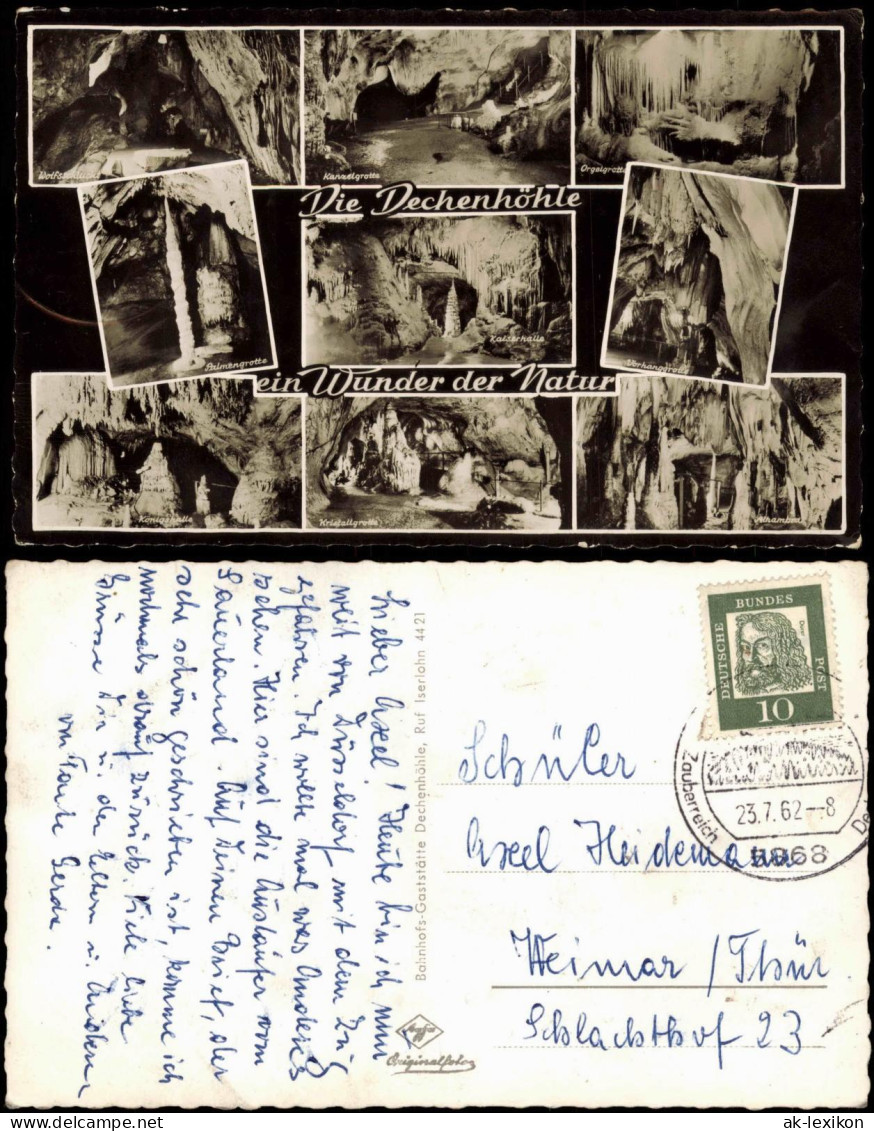 Wolfsschlucht
Kanzelgrotte
Orgelgrotte
Die Dechenhöhle
Palmengrotte
Kaiserhalle
Vorhanggrotte
ein Wunder der Natur
Königshalle
Kristallgrotte
Alhambra
Lieber Axel! Heute bin ich nun
weit von Düsseldorf mit dem Zug
gefahren. Ich wollte mal was Anderes
sehen. Hier sind die Ausläufer vom
Sauerland. Auf Deinen Brief, der
sehr schön geschrieben ist, komme ich
nochmals drauf zurück. Viele liebe
Grüsse Dir u. den Eltern u.
von Tante Gerda.
Bahnhofs-Gaststätte Dechenhöhle, Ruf Iserlohn 4421
Agfa
Originalfoto
DEUTSCHE
BUNDES
POST
Dürer
10
Zauberreich
De
23.7.62--8
5868
Schüler
Axel Heidemann
Weimar / Thür
Schlachthof 23
ak-lexikon